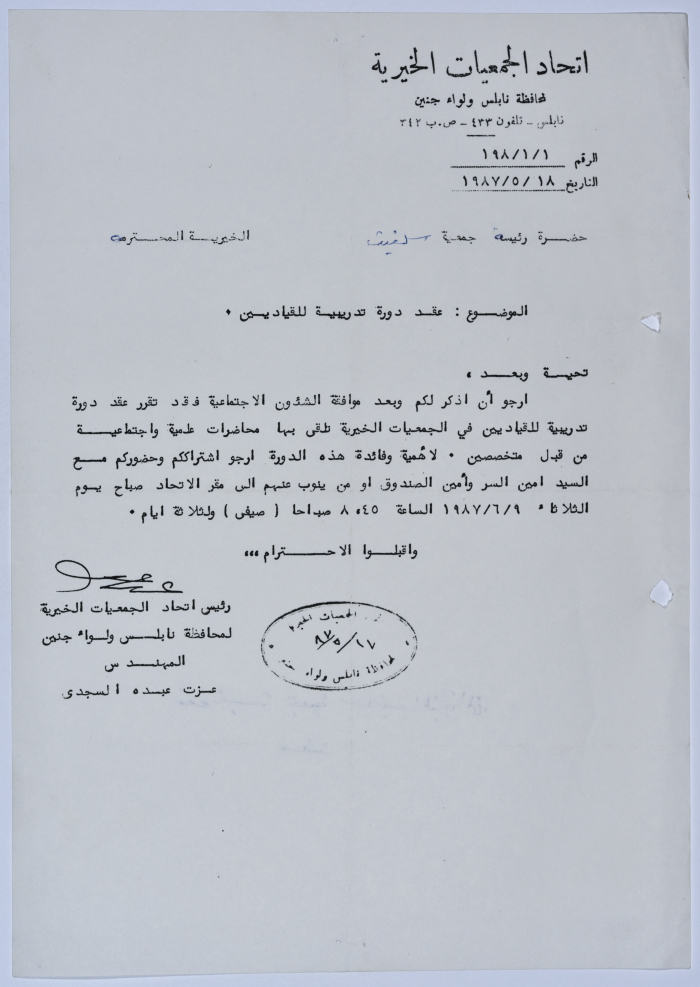 اتحاد الجمعيات الخيرية
لمحافظة نابلس ولواء جنين
نابلس - تلفون ٤٣٣ - ص.ب ٣٤٢
الرقم ١٩٨/١/١
التاريخ ١٩٨٧/٥/١٨
حضرة رئيسة جمعية سلفيت الخيرية المحترمه
الموضوع : عقد دورة تدريبية للقياديين .
تحية وبعد ،
ارجو أن اذكر لكم وبعد موافقة الشئون الاجتماعية فقد تقرر عقد دورة
تدريبية للقياديين في الجمعيات الخيرية تلقى بها محاضرات علمية واجتماعية
من قبل متخصصين . لاهمية وفائدة هذه الدورة ارجو اشتراككم وحضوركم مع
السيد امين السر وأمين الصندوق او من ينوب عنهم الى مقر الاتحاد صباح يوم
الثلاثاء ١٩٨٧/٦/٩ الساعة ٨،٤٥ صباحا ( صيفى ) ولثلاثة ايام .
واقبلوا الاحترام ،،،
رئيس اتحاد الجمعيات الخيرية
لمحافظة نابلس ولواء جنين
المهندس
عزت عبده السجدى
الجمعيات الخيرية
لمحافظة نابلس ولواء جنين